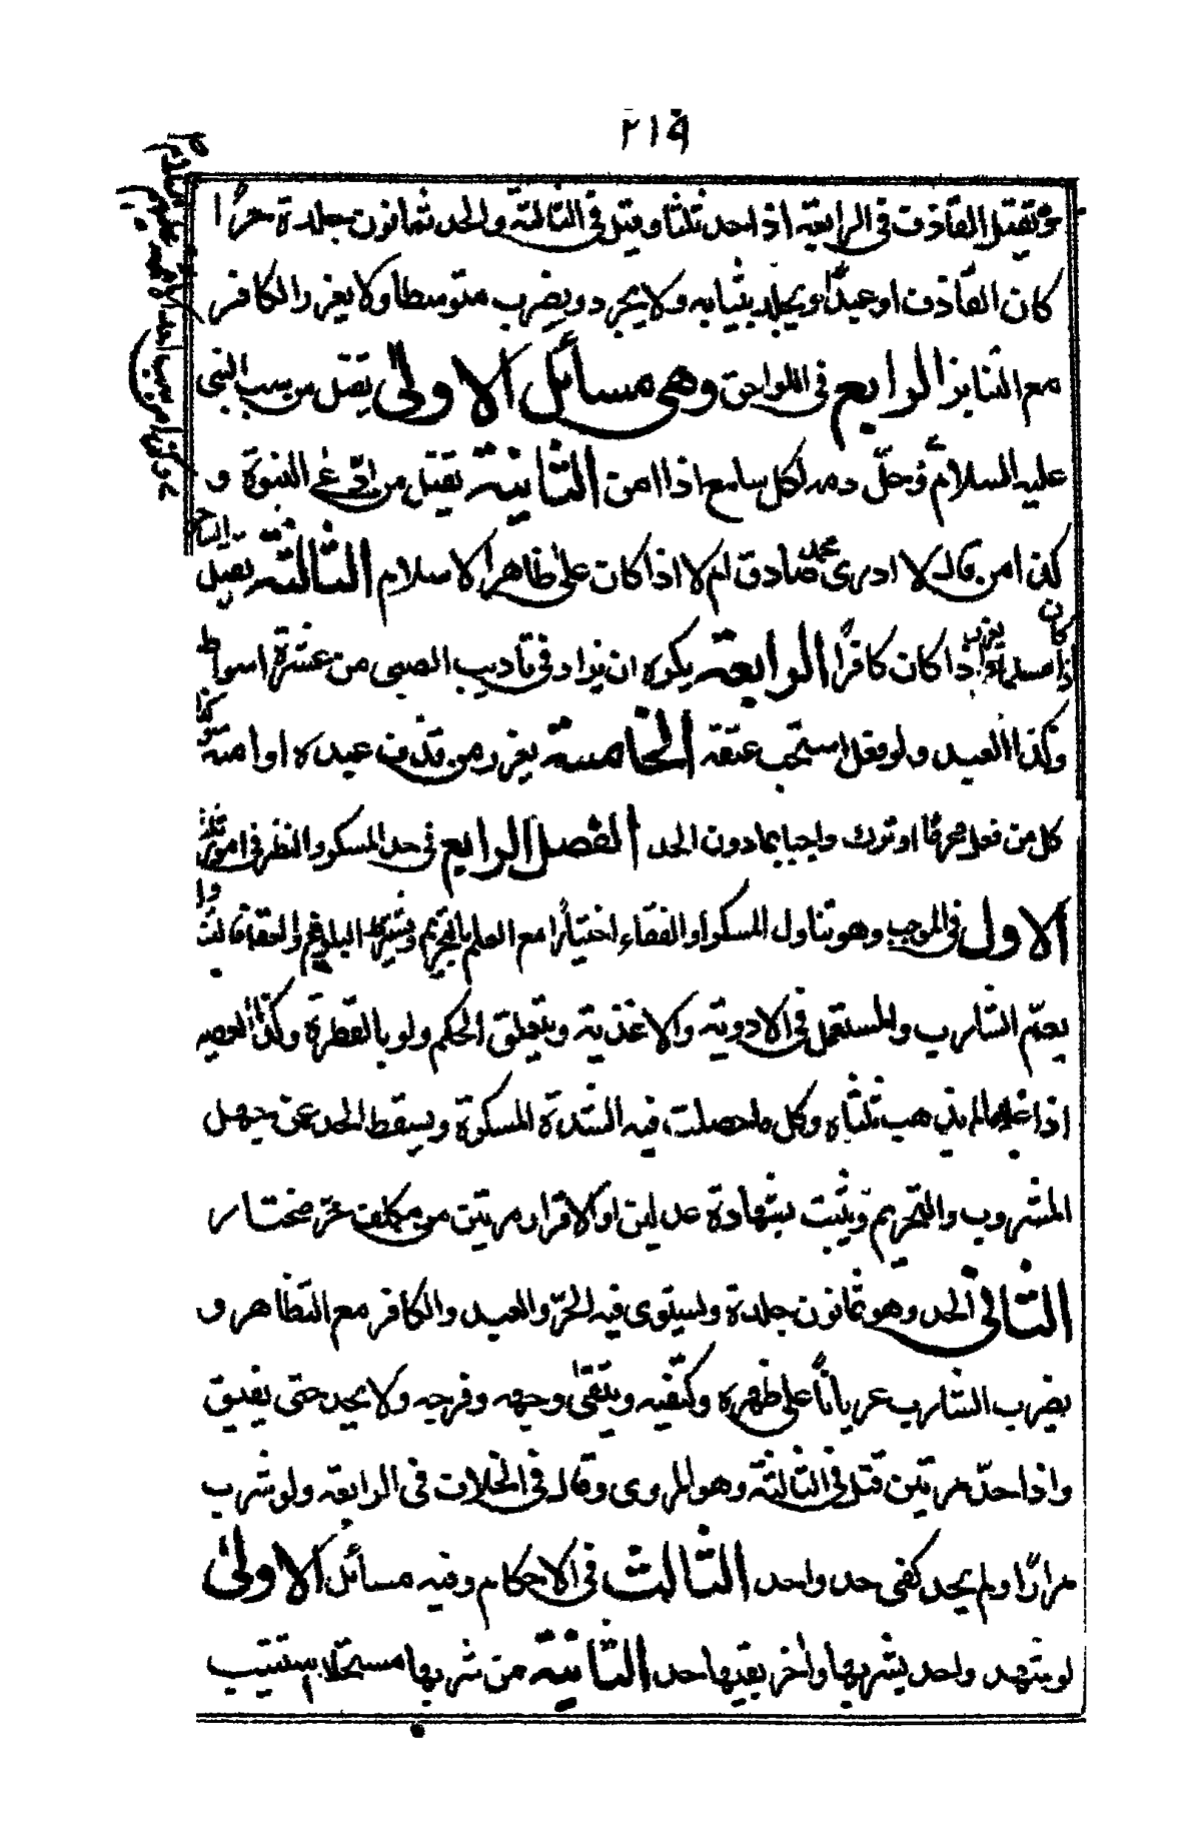 ٢١٩
ويقتل القاذف في الرابعة اذا حد ثلثا وقيل في الثالثة والحد ثمانون جلدة حرًا
كان القاذف او عبدًا ويجلد بثيابه ولا يجرد ويضرب متوسطا ولا يعزر الكافر
مع التنابز الرابع في اللواحق وهي مسائل الاولى يقتل من سب النبي
عليه السلام وحلّ دمه لكل سامع اذا امن الثانية يقتل من ادّعى النبوة و
كذا من قال لا ادري محمد صادق ام لا اذا كان على ظاهر الاسلام الثالثة يقتل الساحر
اذا كان مسلما ويعزر اذا كان كافرًا الرابعة يكره ان يزاد في تاديب الصبي من عشرة اسواط
وكذا العبد ولو فعل استحب عتقه الخامسة يعزر من قذف عبده او امته وكذا
كل من فعل محرمًا او ترك واجبا بمادون الحد الفصل الرابع في حد المسكر والنظر في امور ثلثة
الاول في الموجب وهو تناول المسكر او الفقاع اختيارًا مع العلم بالتحريم ويشترط البلوغ والعقل فالتناول
يعمّ الشارب والمستعمل في الادوية والاغذية ويتعلق الحكم ولو بالقطرة وكذا العصير
اذا غلا مالم يذهب ثلثاه وكل ما حصلت فيه الشدة المسكرة ويسقط الحد عمن جهل
المشروب والتحريم ويثبت بشهادة عدلين او الاقرار مرتين من مكلف حر مختار
الثاني الحد وهو ثمانون جلدة ويستوي فيه الحرّ والعبد والكافر مع التظاهر و
يضرب الشارب عريانًا على ظهره وكتفيه ويتقى وجهه وفرجه ولا يحد حتى يفيق
واذا حدّ مرتين قتل في الثالثة وهو المروي وقال في الخلاف في الرابعة ولو شرب
مرارًا ولم يحد كفى حد واحد الثالث في الاحكام وفيه مسائل الاولى
لو شهد واحد بشربها واخر بقيئها حد الثانية من شربها مستحلا استتيب